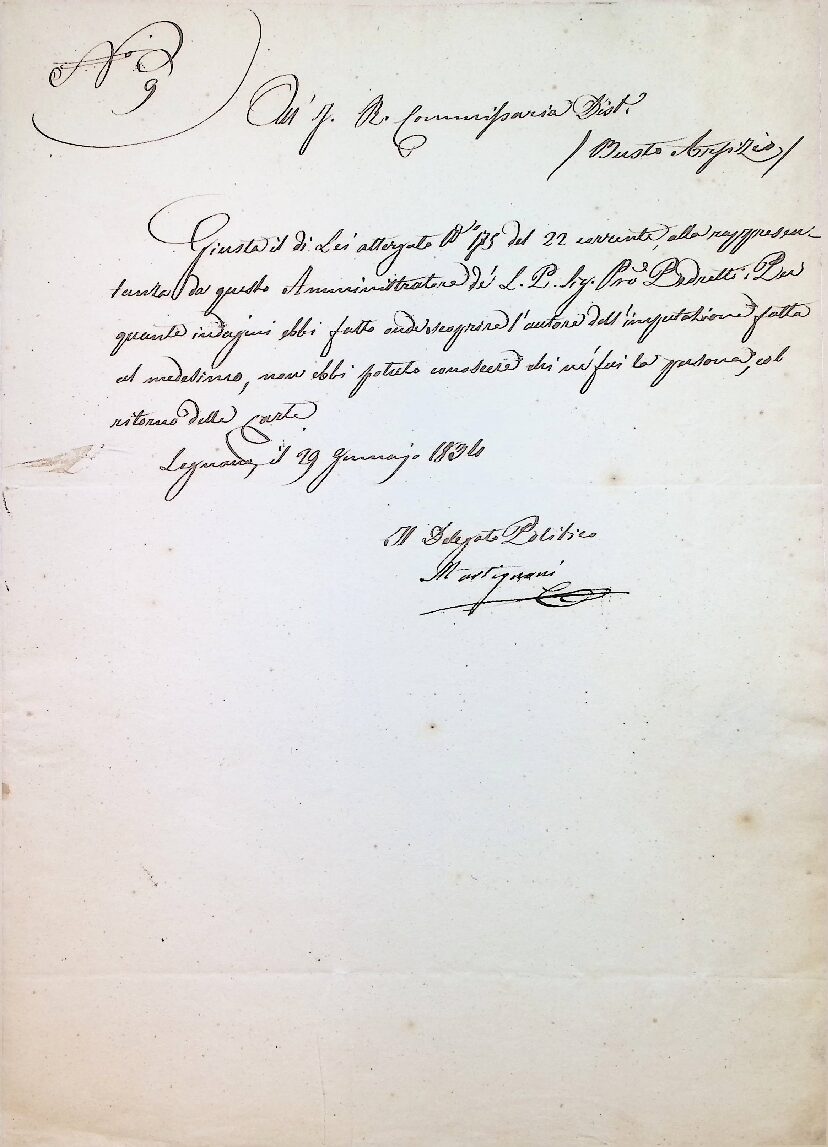 N.° 9
All' I. R. Commissaria Dist.e
/ Busto Arsizio /
Giusta il di Lei attergato N.° 175 del 22 corrente alla rappresen-
tanza da questo Amministratore de' L. P. Sig. Pro Pedretti; Per
quante indagini ebbi fatto onde scoprire l'autore dell'imputazione fatta
al medesimo, non ebbi potuto conoscere chi ne fu la persona, col
ritorno delle Carte
Legnano, il 29 Gennajo
Il Delegato Politico